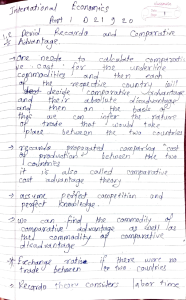 International Economics
Part 1 Q 21, 9 20
David Ricardo and Comparative
Advantage.
→ one needs to calculate comparati
ve cost for the underline
commodities and then each
of the respective country will
decide comparative advantage
and their absolute disadvantage
and then on the basis of
this we can infer the nature
of trade that would take
place between the two countries
→ ricardo propagated comparing "cost
of production" between the two
countries
it is also called comparative
cost advantage theory
→ assume perfect competition and
perfect knowledge.
→ we can find the commodity of
comparative advantage as well as
the commodity of comparative
disadvantage
* Exchange ratio if there were no
trade between the two countries
→ Ricardo theory considers labor time